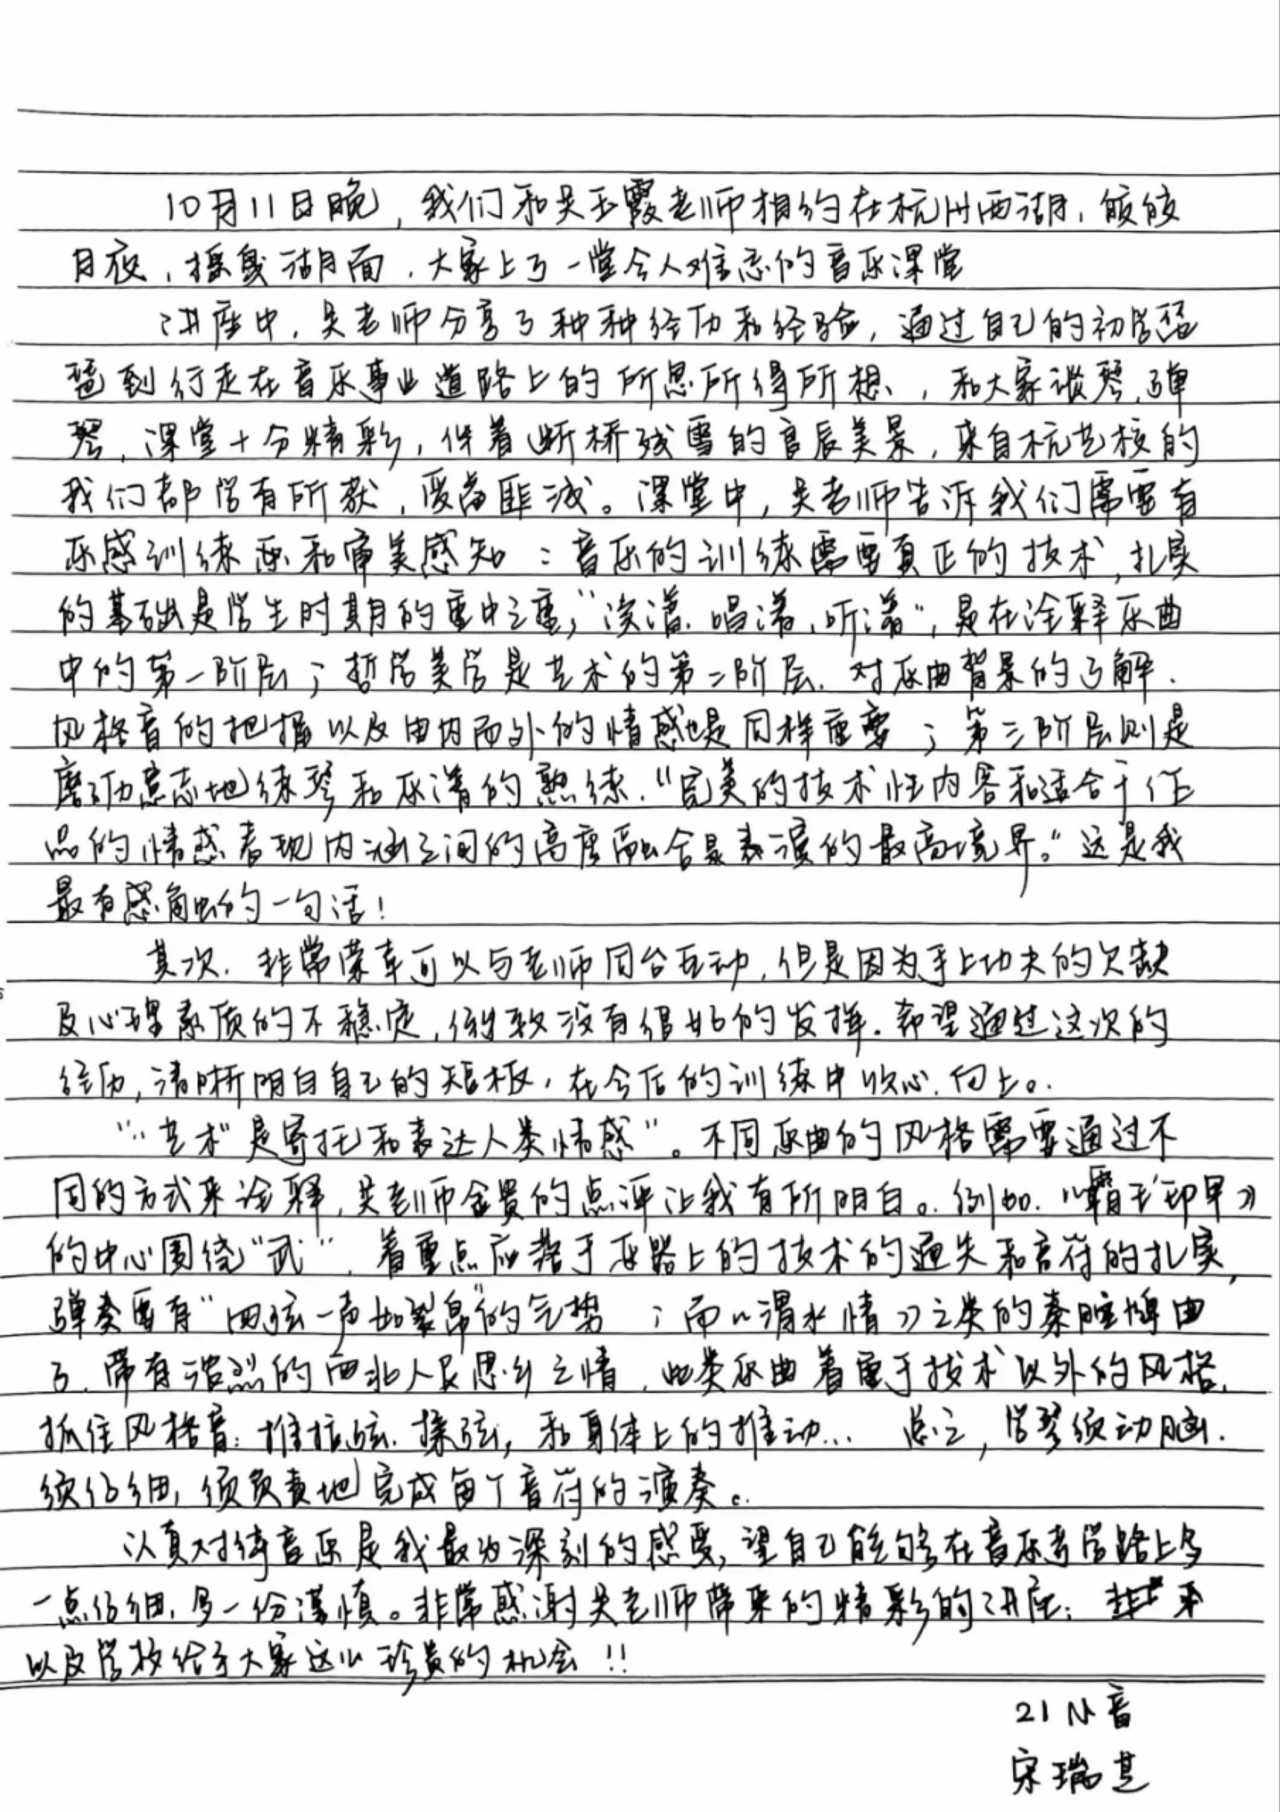 10月11日晚，我们和吴玉霞老师相约在杭州西湖，皎皎
月夜，摇曳湖面，大家上了一堂令人难忘的音乐课堂
讲座中，吴老师分享了种种经历和经验，通过自己的初学琵
琶到行走在音乐事业道路上的所思所得所想，和大家谈琴，弹
琴，课堂十分精彩，伴着断桥残雪的良辰美景，来自杭艺校的
我们都学有所获，受益匪浅。课堂中，吴老师告诉我们需要有
乐感训练和审美感知：音乐的训练需要真正的技术，扎实
的基础是学生时期的重中之重，“读谱、唱谱、听谱”，是在诠释乐曲
中的第一阶层；哲学美学是艺术的第二阶层，对乐曲背景的了解，
风格音的把握以及由内而外的情感也是同样重要；第三阶层则是
磨砺意志地练琴和乐谱的熟练，“完美的技术性内容和适合于作
品的情感表现内涵之间的高度融合是表演的最高境界。”这是我
最有感触的一句话！
其次，非常荣幸可以与老师同台互动，但是因为手上功夫的欠缺
及心理素质的不稳定，导致没有很好的发挥，希望通过这次的
经历，清晰明白自己的短板，在今后的训练中收心，向上。
“艺术”是寄托和表达人类情感”。不同乐曲的风格需要通过不
同的方式来诠释，吴老师金贵的点评让我有所明白。例如，《霸王卸甲》
的中心围绕“武”，着重点应落于乐器上的技术的和音符的扎实，
弹奏要有“四弦一声如裂帛”的气势；而《渭水情》之类的秦腔
了，带有浓烈的西北人民思乡之情，此类乐曲着重于技术以外的风格，
抓住风格音：推拉弦、揉弦，和身体上的推动… 总之，学琴须动脑，
须仔细，须负责地完成每个音符的演奏。
认真对待音乐是我最为深刻的感受，望自己能够在音乐求学路上多
一点仔细，多一份谨慎。非常感谢吴老师带来的精彩的讲座；
以及学校给予大家这么珍贵的机会！！
21小音
宋瑞芝